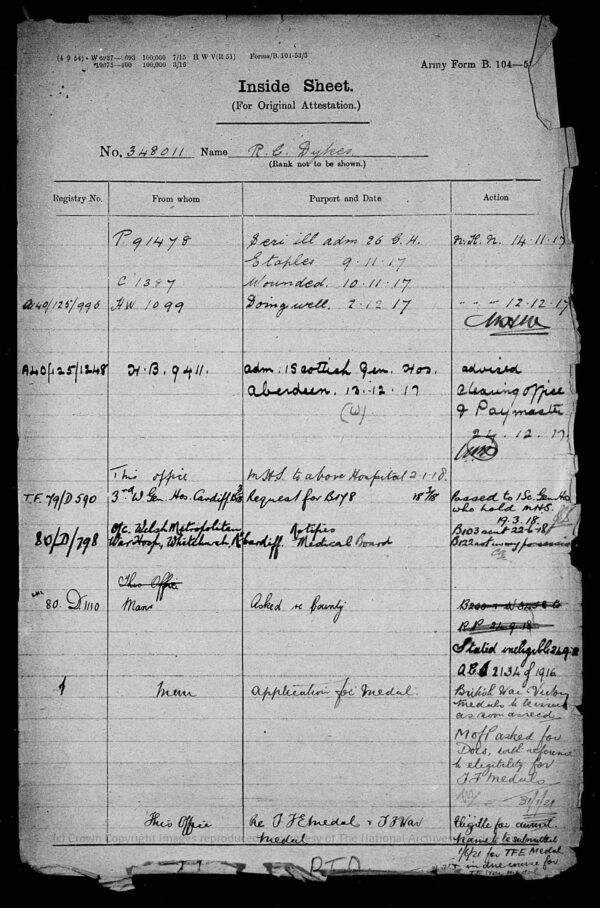 (4 9 54)—W 6937— 693 100,000 7/15 H W V(R 51) Forms/B. 104-53/5
"19075—400 100,000 3/16
Army Form B. 104—5
Inside Sheet.
(For Original Attestation.)
No. 348011 Name R. C. Dykes
(Rank not to be shown.)
Registry No. From whom Purport and Date Action
P 91478 Seri ill adm 26 G. H. 14.11.17
Etaples 9.11.17
C 1387 Wounded. 10.11.17
A40/125/996 HW 1099 Doing well. 2.12.17 " " 12.12.17
A40/125/1248 H.B. 9411. adm. 1 Scottish Gen. Hos. advised
Aberdeen. 13.12.17 Clearing Office
(W) & Paymaster
24.12.17
This office M.H.S. to above Hospital 2.1.18.
T.F. 79/D 590 3rd W. Gen. Hos. Cardiff Request for B178 Passed to 1 Sc. Gen. Ho
who hold M.H.S.
19.3.18.
80/D/798 O/c. Welsh Metropolitan Notifies B103 sent 22.6.18
War Hosp, Whitchurch, Nr Cardiff. Medical Board B122 not
This Office
80. D 1110 Mans Asked re County
R.P. 24.9.18
Stated ineligible 24.9.18
2134 of 1916
Man Application for Medal. British War Victory
Medals to be issued
as soon as recd.
M of P asked for
Docs, with reference
to eligibility for
T.F. Medals
31/1/21
This Office Re T.F.E medal & T.F War Eligible for award.
Medal Name to be submitted
1/6/21 for TFE Medal
in due course for
TF War Medal
(c) Crown Copyright Images reproduced by courtesy of The National Archives
PTO